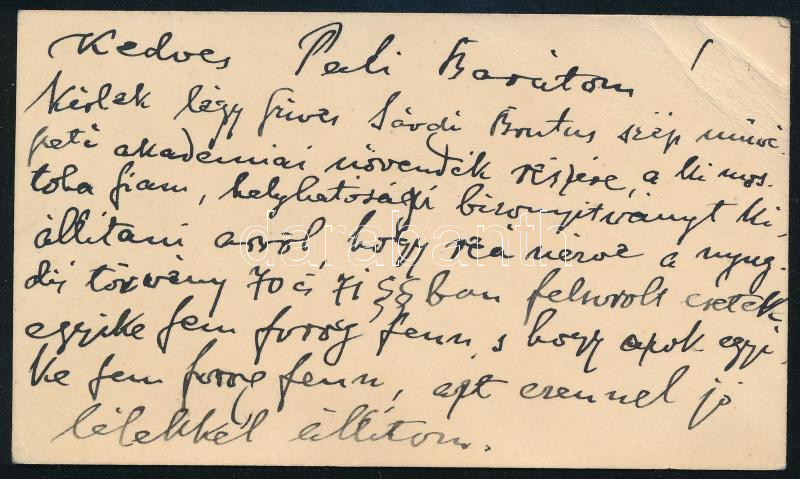 Kedves Pali Barátom !
Kérlek légy szives Sávdi Brutus szép müvé-
szeti akademiai növendék részére, a ki mos-
toha fiam, helyhatósági bizonyitványt ki-
állitani arról, hogy reá nézve a nyug-
dij törvény 70 és 71 §§ban felsorolt esetek
egyike sem forog fenn, s hogy azok egyi-
ke sem forog fenn, azt ezennel jó
lélekkel állitom.
darabanth